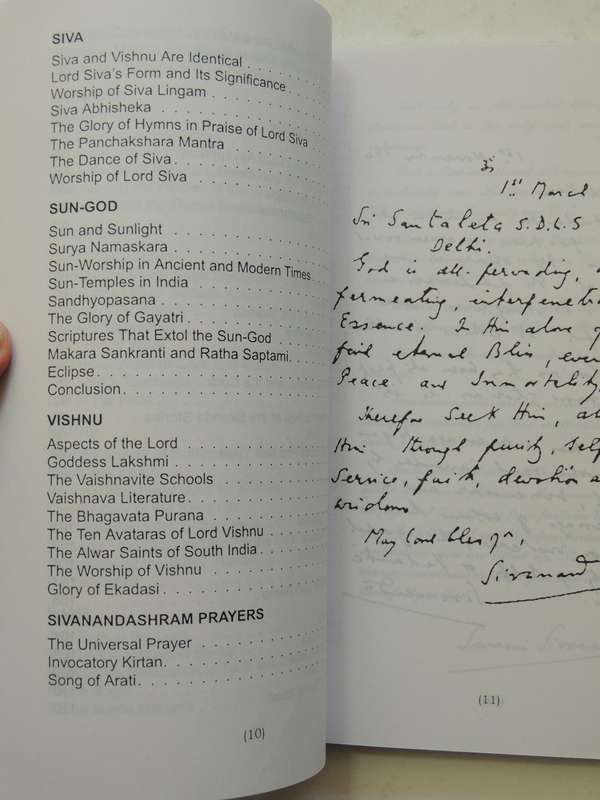 SIVA
Siva and Vishnu Are Identical . . . . . . . .
Lord Siva's Form and Its Significance . . . .
Worship of Siva Lingam . . . . . . . . . .
Siva Abhisheka . . . . . . . . . . . . .
The Glory of Hymns in Praise of Lord Siva
The Panchakshara Mantra . . . . . . . . .
The Dance of Siva . . . . . . . . . . . .
Worship of Lord Siva . . . . . . . . . . .
SUN-GOD
Sun and Sunlight . . . . . . . . . . . .
Surya Namaskara . . . . . . . . . . . .
Sun-Worship in Ancient and Modern Times . .
Sun-Temples in India . . . . . . . . . . .
Sandhyopasana . . . . . . . . . . . . .
The Glory of Gayatri . . . . . . . . . . .
Scriptures That Extol the Sun-God . . . . .
Makara Sankranti and Ratha Saptami. . . .
Eclipse . . . . . . . . . . . . . . . . .
Conclusion . . . . . . . . . . . . . . .
VISHNU
Aspects of the Lord . . . . . . . . . . .
Goddess Lakshmi . . . . . . . . . . . .
The Vaishnavite Schools . . . . . . . . .
Vaishnava Literature . . . . . . . . . . .
The Bhagavata Purana . . . . . . . . . .
The Ten Avataras of Lord Vishnu . . . . . .
The Alwar Saints of South India . . . . . .
The Worship of Vishnu . . . . . . . . . .
Glory of Ekadasi . . . . . . . . . . . . .
SIVANANDASHRAM PRAYERS
The Universal Prayer . . . . . . . . . . .
Invocatory Kirtan . . . . . . . . . . . . .
Song of Arati . . . . . . . . . . . . . .
(10)
ॐ
1st March
Sri Santaleta S.D.L.S
Delhi.
God is all-pervading,
permeating, interpenetra
Essence. In Him alone
find eternal Bliss, ever
Peace and Immortality
Therefore Seek Him,
Him through purity, self
Service, faith, devotion
wisdom
May Lord bless you,
Sivanand
(11)